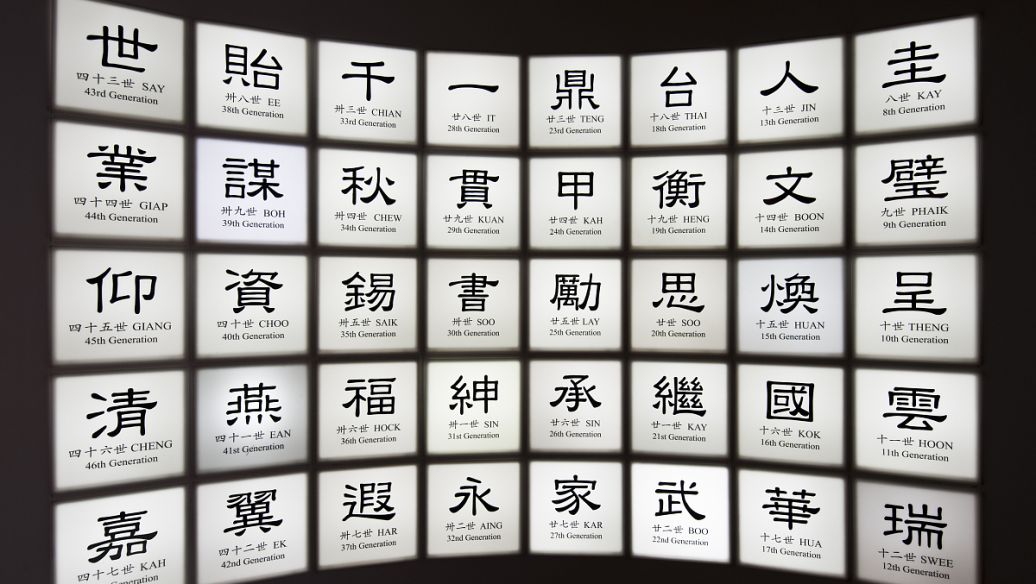 圭
八世 KAY
8th Generation
璧
九世 PHAIK
9th Generation
呈
十世 THENG
10th Generation
雲
十一世 HOON
11th Generation
瑞
十二世 SWEE
12th Generation
人
十三世 JIN
13th Generation
文
十四世 BOON
14th Generation
煥
十五世 HUAN
15th Generation
國
十六世 KOK
16th Generation
華
十七世 HUA
17th Generation
台
十八世 THAI
18th Generation
衡
十九世 HENG
19th Generation
思
廿世 SOO
20th Generation
繼
廿一世 KAY
21st Generation
武
廿二世 BOO
22nd Generation
鼎
廿三世 TENG
23rd Generation
甲
廿四世 KAH
24th Generation
勵
廿五世 LAY
25th Generation
承
廿六世 SIN
26th Generation
家
廿七世 KAR
27th Generation
一
廿八世 IT
28th Generation
貫
廿九世 KUAN
29th Generation
書
卅世 SOO
30th Generation
紳
卅一世 SIN
31st Generation
永
卅二世 AING
32nd Generation
千
卅三世 CHIAN
33rd Generation
秋
卅四世 CHEW
34th Generation
錫
卅五世 SAIK
35th Generation
福
卅六世 HOCK
36th Generation
遐
卅七世 HAR
37th Generation
貽
卅八世 EE
38th Generation
謀
卅九世 BOH
39th Generation
資
四十世 CHOO
40th Generation
燕
四十一世 EAN
41st Generation
翼
四十二世 EK
42nd Generation
世
四十三世 SAY
43rd Generation
業
四十四世 GIAP
44th Generation
仰
四十五世 GIANG
45th Generation
清
四十六世 CHENG
46th Generation
嘉
四十七世 KAH